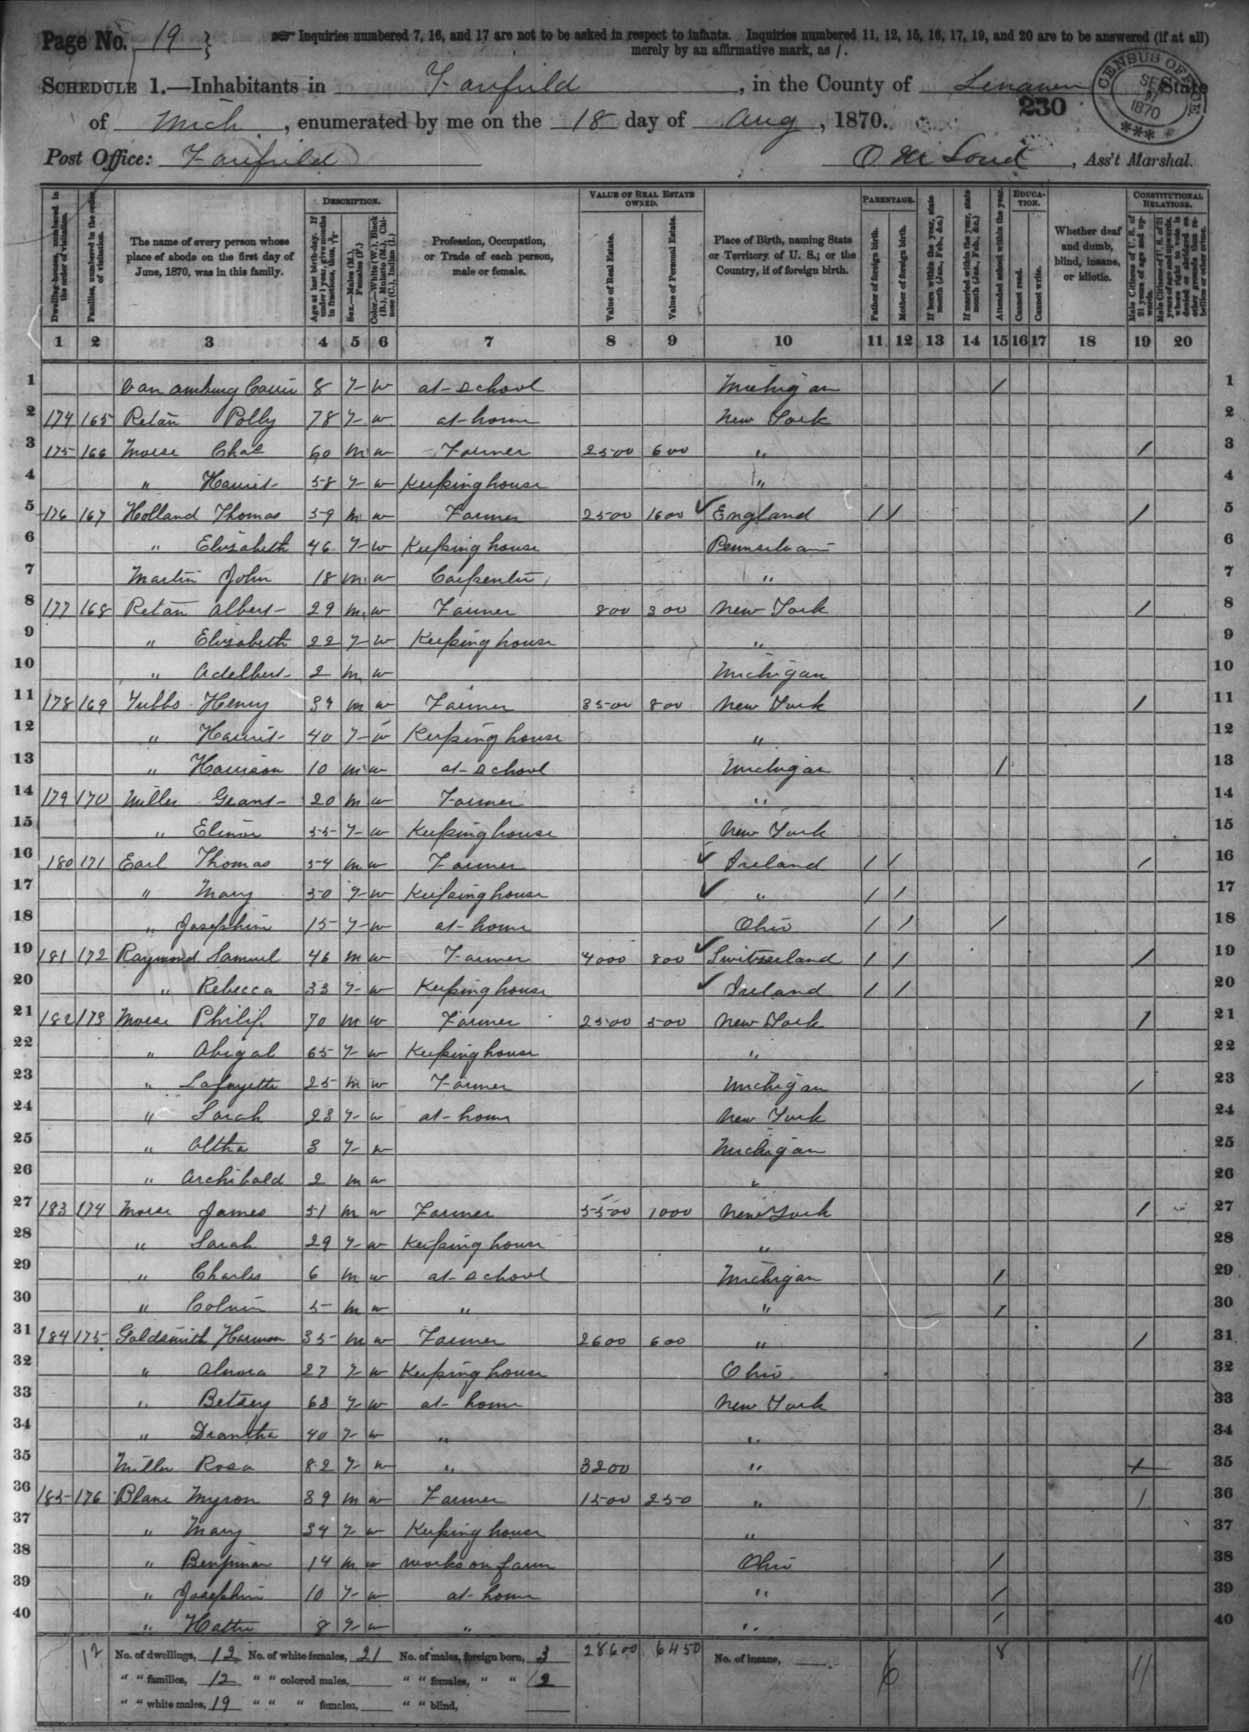 Page No. 19 } Inquiries numbered 7, 16, and 17 are not to be asked in respect to infants. Inquiries numbered 11, 12, 15, 16, 17, 19, and 20 are to be answered (if at all)
merely by an affirmative mark, as /.
SCHEDULE 1.—Inhabitants in Fairfield, in the County of Lenawee, State
230
CENSUS OFFICE SEP 1870
of Mich, enumerated by me on the 18 day of Aug, 1870.
Post Office: Fairfield, Ass't Marshal.
Dwelling-houses, numbered in the order of visitation.
Families, numbered in the order of visitation.
The name of every person whose place of abode on the first day of June, 1870, was in this family.
DESCRIPTION.
Age at last birth-day. If under 1 year, give months in fractions, thus, 3/12
Sex.—Males (M.), Females (F.)
Color.—White (W.), Black (B.), Mulatto (M.), Chinese (C.), Indian (I.)
Profession, Occupation, or Trade of each person, male or female.
VALUE OF REAL ESTATE OWNED.
Value of Real Estate.
Value of Personal Estate.
Place of Birth, naming State or Territory of U. S.; or the Country, if of foreign birth.
PARENTAGE.
Father of foreign birth.
Mother of foreign birth.
If born within the year, state month (Jan., Feb., &c.)
If married within the year, state month (Jan., Feb., &c.)
Attended school within the year.
EDUCATION.
Cannot read.
Cannot write.
Whether deaf and dumb, blind, insane, or idiotic.
CONSTITUTIONAL RELATIONS.
Male Citizens of U. S. of 21 years of age and upwards.
Male Citizens of U. S. of 21 years of age and upwards, whose right to vote is denied or abridged on other grounds than rebellion or other crime.
1 2 3 4 5 6 7 8 9 10 11 12 13 14 15 16 17 18 19 20
1 Van Amburg Carrie 8 F W at School Michigan / 1
2 174 165 Retan Polly 78 F W at home New York 2
3 175 166 Morse Chas 60 M W Farmer 2500 600 " / 3
4 " Harriet 58 F W Keeping house " 4
5 176 167 Holland Thomas 59 M W Farmer 2500 1600 England / / / 5
6 " Elizabeth 46 F W Keeping house 6
7 Martin John 18 M W Carpenter " 7
8 177 168 Retan Albert 29 M W Farmer 800 300 New York / 8
9 " Elizabeth 22 F W Keeping house " 9
10 " Adelbert 2 M W Michigan 10
11 178 169 Tubbs Henry 39 M W Farmer 3500 800 New York / 11
12 " Harriet 40 F W Keeping house " 12
13 " Harrison 10 M W at School Michigan / 13
14 179 170 Miller Grant 20 M W Farmer " 14
15 " Elinor 55 F W Keeping house New York 15
16 180 171 Earl Thomas 54 M W Farmer Ireland / / / 16
17 " Mary 50 F W Keeping house " / / 17
18 " Josephine 15 F W at home Ohio / / / 18
19 181 172 Raymond Samuel 46 M W Farmer 4000 800 Switzerland / / / 19
20 " Rebecca 33 F W Keeping house Ireland / / 20
21 182 173 Morse Philip 70 M W Farmer 2500 500 New York / 21
22 " Abigal 65 F W Keeping house " 22
23 " Lafayette 25 M W Farmer Michigan / 23
24 " Sarah 23 F W at home New York 24
25 " Altha 3 F W Michigan 25
26 " Archibald 2 M W " 26
27 183 174 Morse James 51 M W Farmer 5500 1000 New York / 27
28 " Sarah 29 F W Keeping house " 28
29 " Charles 6 M W at School Michigan / 29
30 " Colvin 5 M W " " / 30
31 184 175 Goldsmith Harmon 35 M W Farmer 2600 600 " / 31
32 " Almira 27 F W Keeping house Ohio 32
33 " Betsey 63 F W at home New York 33
34 " 40 F W " " 34
35 Miller Rosa 82 F W " 3200 " 35
36 185 176 Blane Myron 39 M W Farmer 1500 250 " / 36
37 " Mary 34 F W Keeping house " 37
38 " Benjiman 14 M W works on farm Ohio / 38
39 " Josephine 10 F W at home " / 39
40 " Hattie 8 F W " " / 40
12 No. of dwellings, 12 No. of white females, 21 No. of males, foreign born, 3 28600 6450 No. of insane, 6 8 11
" " families, 12 " " colored males, " " females, " " 2
" " white males, 19 " " " females, " " blind,